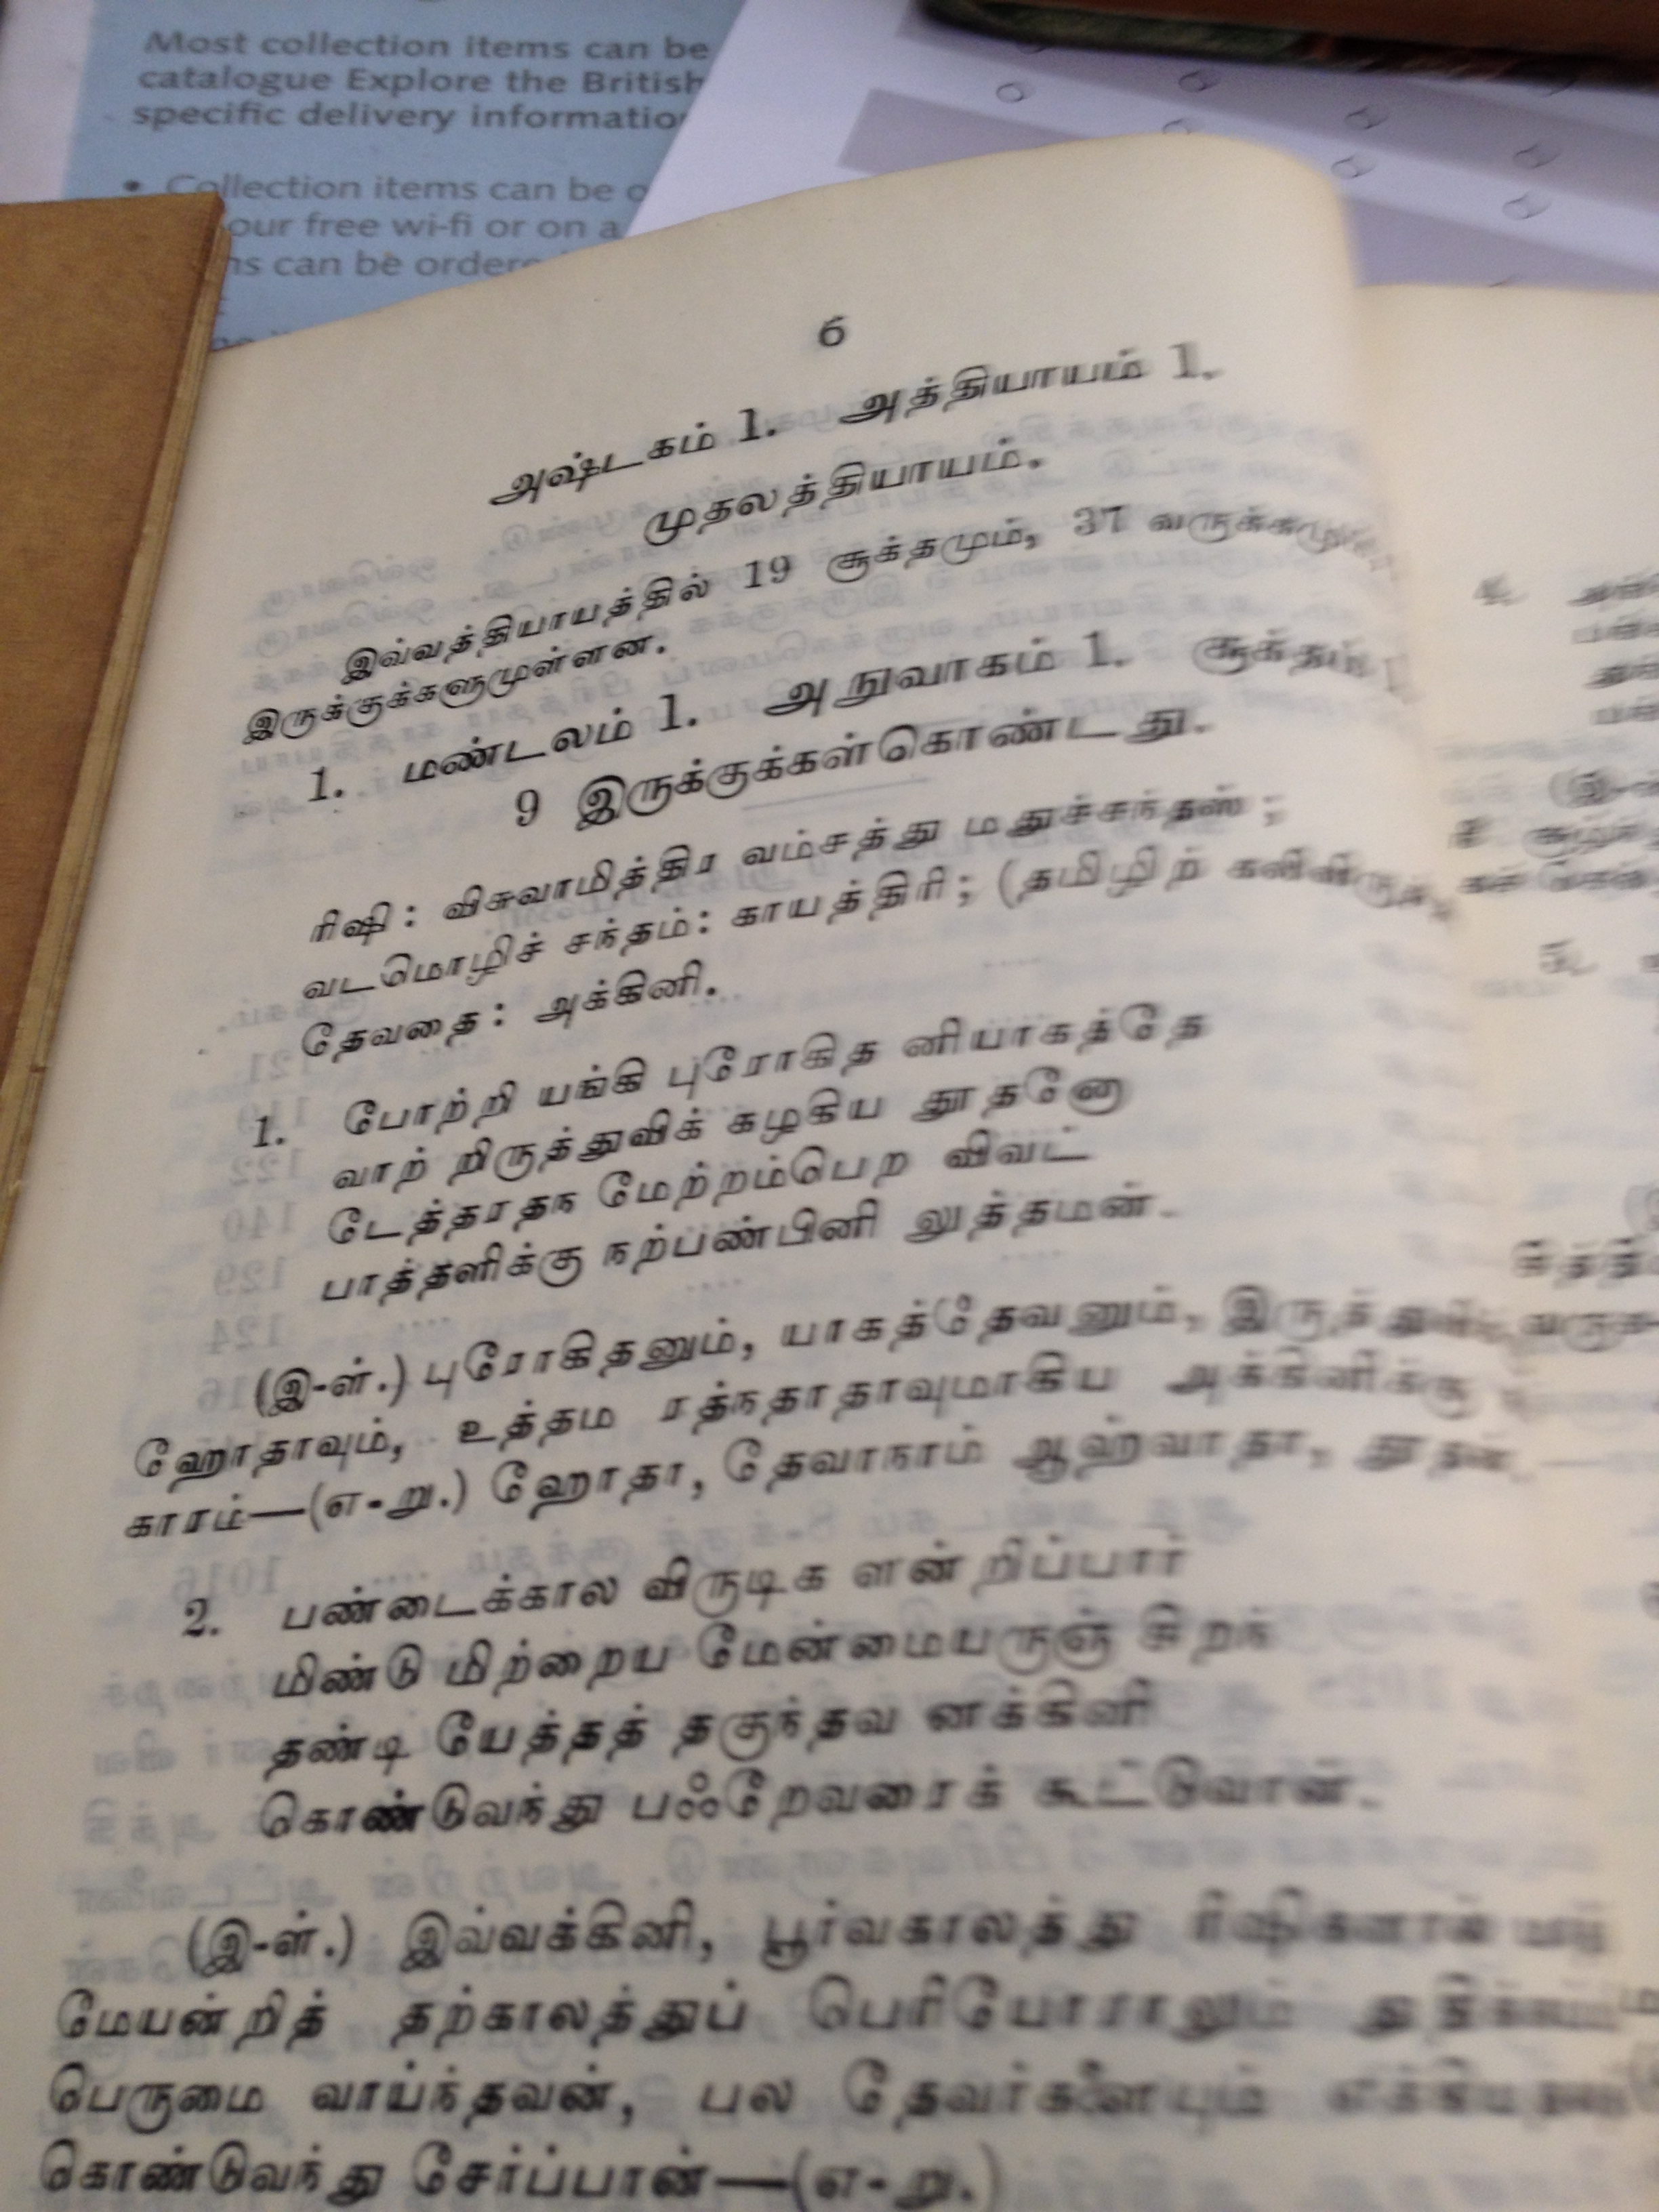 Most collection items can be
catalogue Explore the British
specific delivery
• Collection items can be
our free wi-fi or on a
can be
6
அஷ்டகம் 1. அத்தியாயம் 1.
முதலத்தியாயம்.
இவ்வத்தியாயத்தில் 19 சூக்தமும், 37
இருக்குக்களுமுள்ளன.
1. மண்டலம் 1. அநுவாகம் 1. சூக்தம்
9 இருக்குக்கள்கொண்டது.
ரிஷி : விசுவாமித்திர வம்சத்து மதுச்சந்தஸ் ;
வடமொழிச் சந்தம்: காயத்திரி ; (தமிழிற்
தேவதை : அக்கினி.
1. போற்றி யங்கி புரோகித னியாகத்தே
வாற் றிருத்துவிக் கழகிய தூதனோ
டேத்தரதந மேற்றம்பெற விவட்
பாத்தளிக்கு நற்பண்பினி லுத்தமன்.
(இ-ள்.) புரோகிதனும், யாகத்தேவனும்,
ஹோதாவும், உத்தம ரத்நதாதாவுமாகிய அக்கினிக்கு
காரம்—(எ-று.) ஹோதா, தேவாநாம் ஆஹ்வாதா, தூதன்.
2. பண்டைக்கால விருடிக ளன்றிப்பார்
மிண்டு மிற்றைய மேன்மையருஞ் சிறந்
தண்டி யேத்தத் தகுந்தவ னக்கினி
கொண்டுவந்து பஃறேவரைக் கூட்டுவான்.
(இ-ள்.) இவ்வக்கினி, பூர்வகாலத்து
மேயன்றித் தற்காலத்துப் பெரியோராலும்
பெருமை வாய்ந்தவன், பல தேவர்களையும்
கொண்டுவந்து சேர்ப்பான்—(எ-று.)
4.
5.